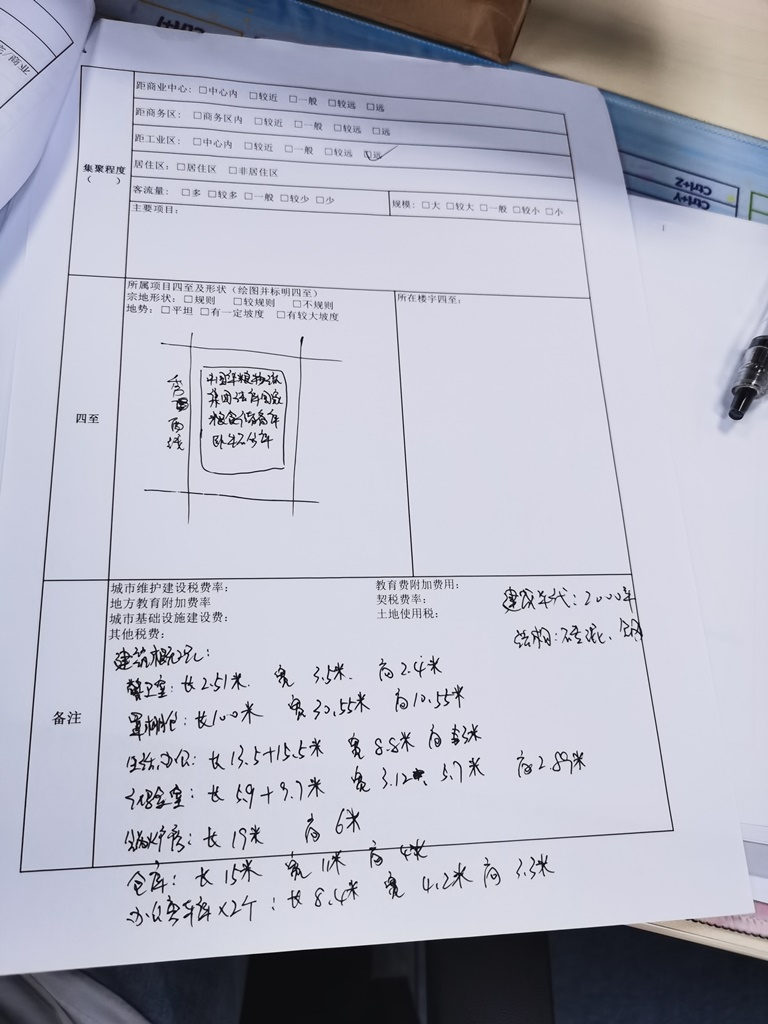 距商业中心：□中心内 □较近 □一般 □较远 □远
距商务区：□商务区内 □较近 □一般 □较远 □远
距工业区：□中心内 □较近 □一般 □较远 □远
集聚程度
（ ）
居住区：□居住区 □非居住区
客流量：□多 □较多 □一般 □较少 □少
规模：□大 □较大 □一般 □较小 □小
主要项目：
四至
所属项目四至及形状（绘图并标明四至）
宗地形状：□规则 □较规则 □不规则
地势：□平坦 □有一定坡度 □有较大坡度
所在楼宇四至：
西线
中国华粮物流
集团 国家
粮食储备库
卧牛石分库
备注
城市维护建设税费率：
教育费附加费用：
地方教育附加费率
契税费率：
城市基础设施建设费：
土地使用税：
其他税费：
建成年代：2000年
结构：砖混、
建筑概况：
警卫室：长2.51米 宽3.5米 高2.4米
罩棚仓：长100米 宽30.55米 高10.55米
生活办公：长13.5+15.5米 宽8.8米 高 3米
化验室：长5.9+9.7米 宽3.12 5.7米 高2.89米
锅炉房：长19米 高6米
仓库：长15米 宽11米 高4米
办公 车库×2个：长8.4米 宽4.2米 高3.3米
Ctrl+Z
Ctrl+Y